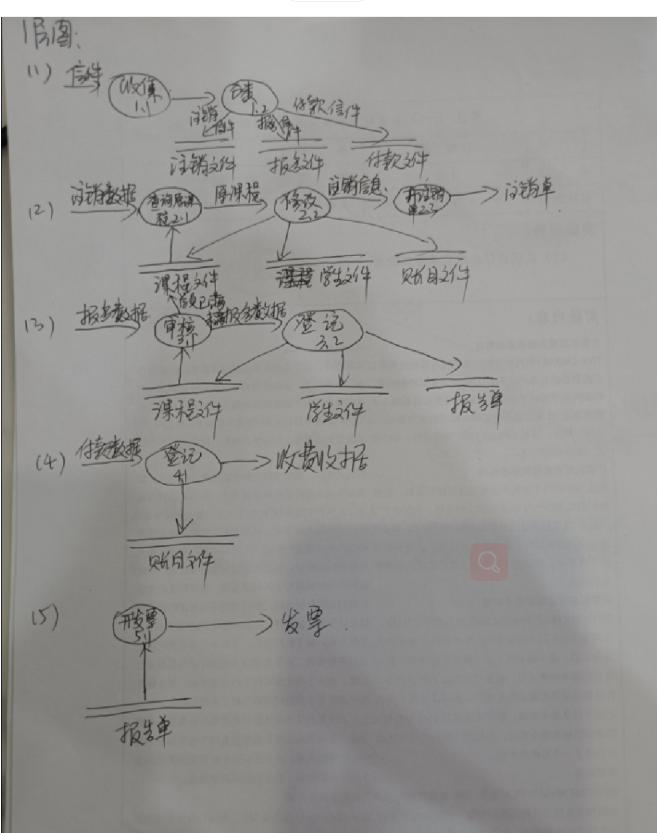 1层图:
(1) 信件 收集 1.1 分类 1.2 付款信件
注销信件 报名信件
注销文件 报名文件 付款文件
(2) 注销数据 查询原课程2.1 原课程 修改 2.2 注销信息 开注销单2.3 注销单
课程文件 学生文件 账目文件
(3) 报名数据 审核 3.1 报名数据 登记 3.2
课程文件 学生文件 报告单
(4) 付款数据 登记 4.1 收费收据
账目文件
(5) 开发票 5.1 发票.
报告单